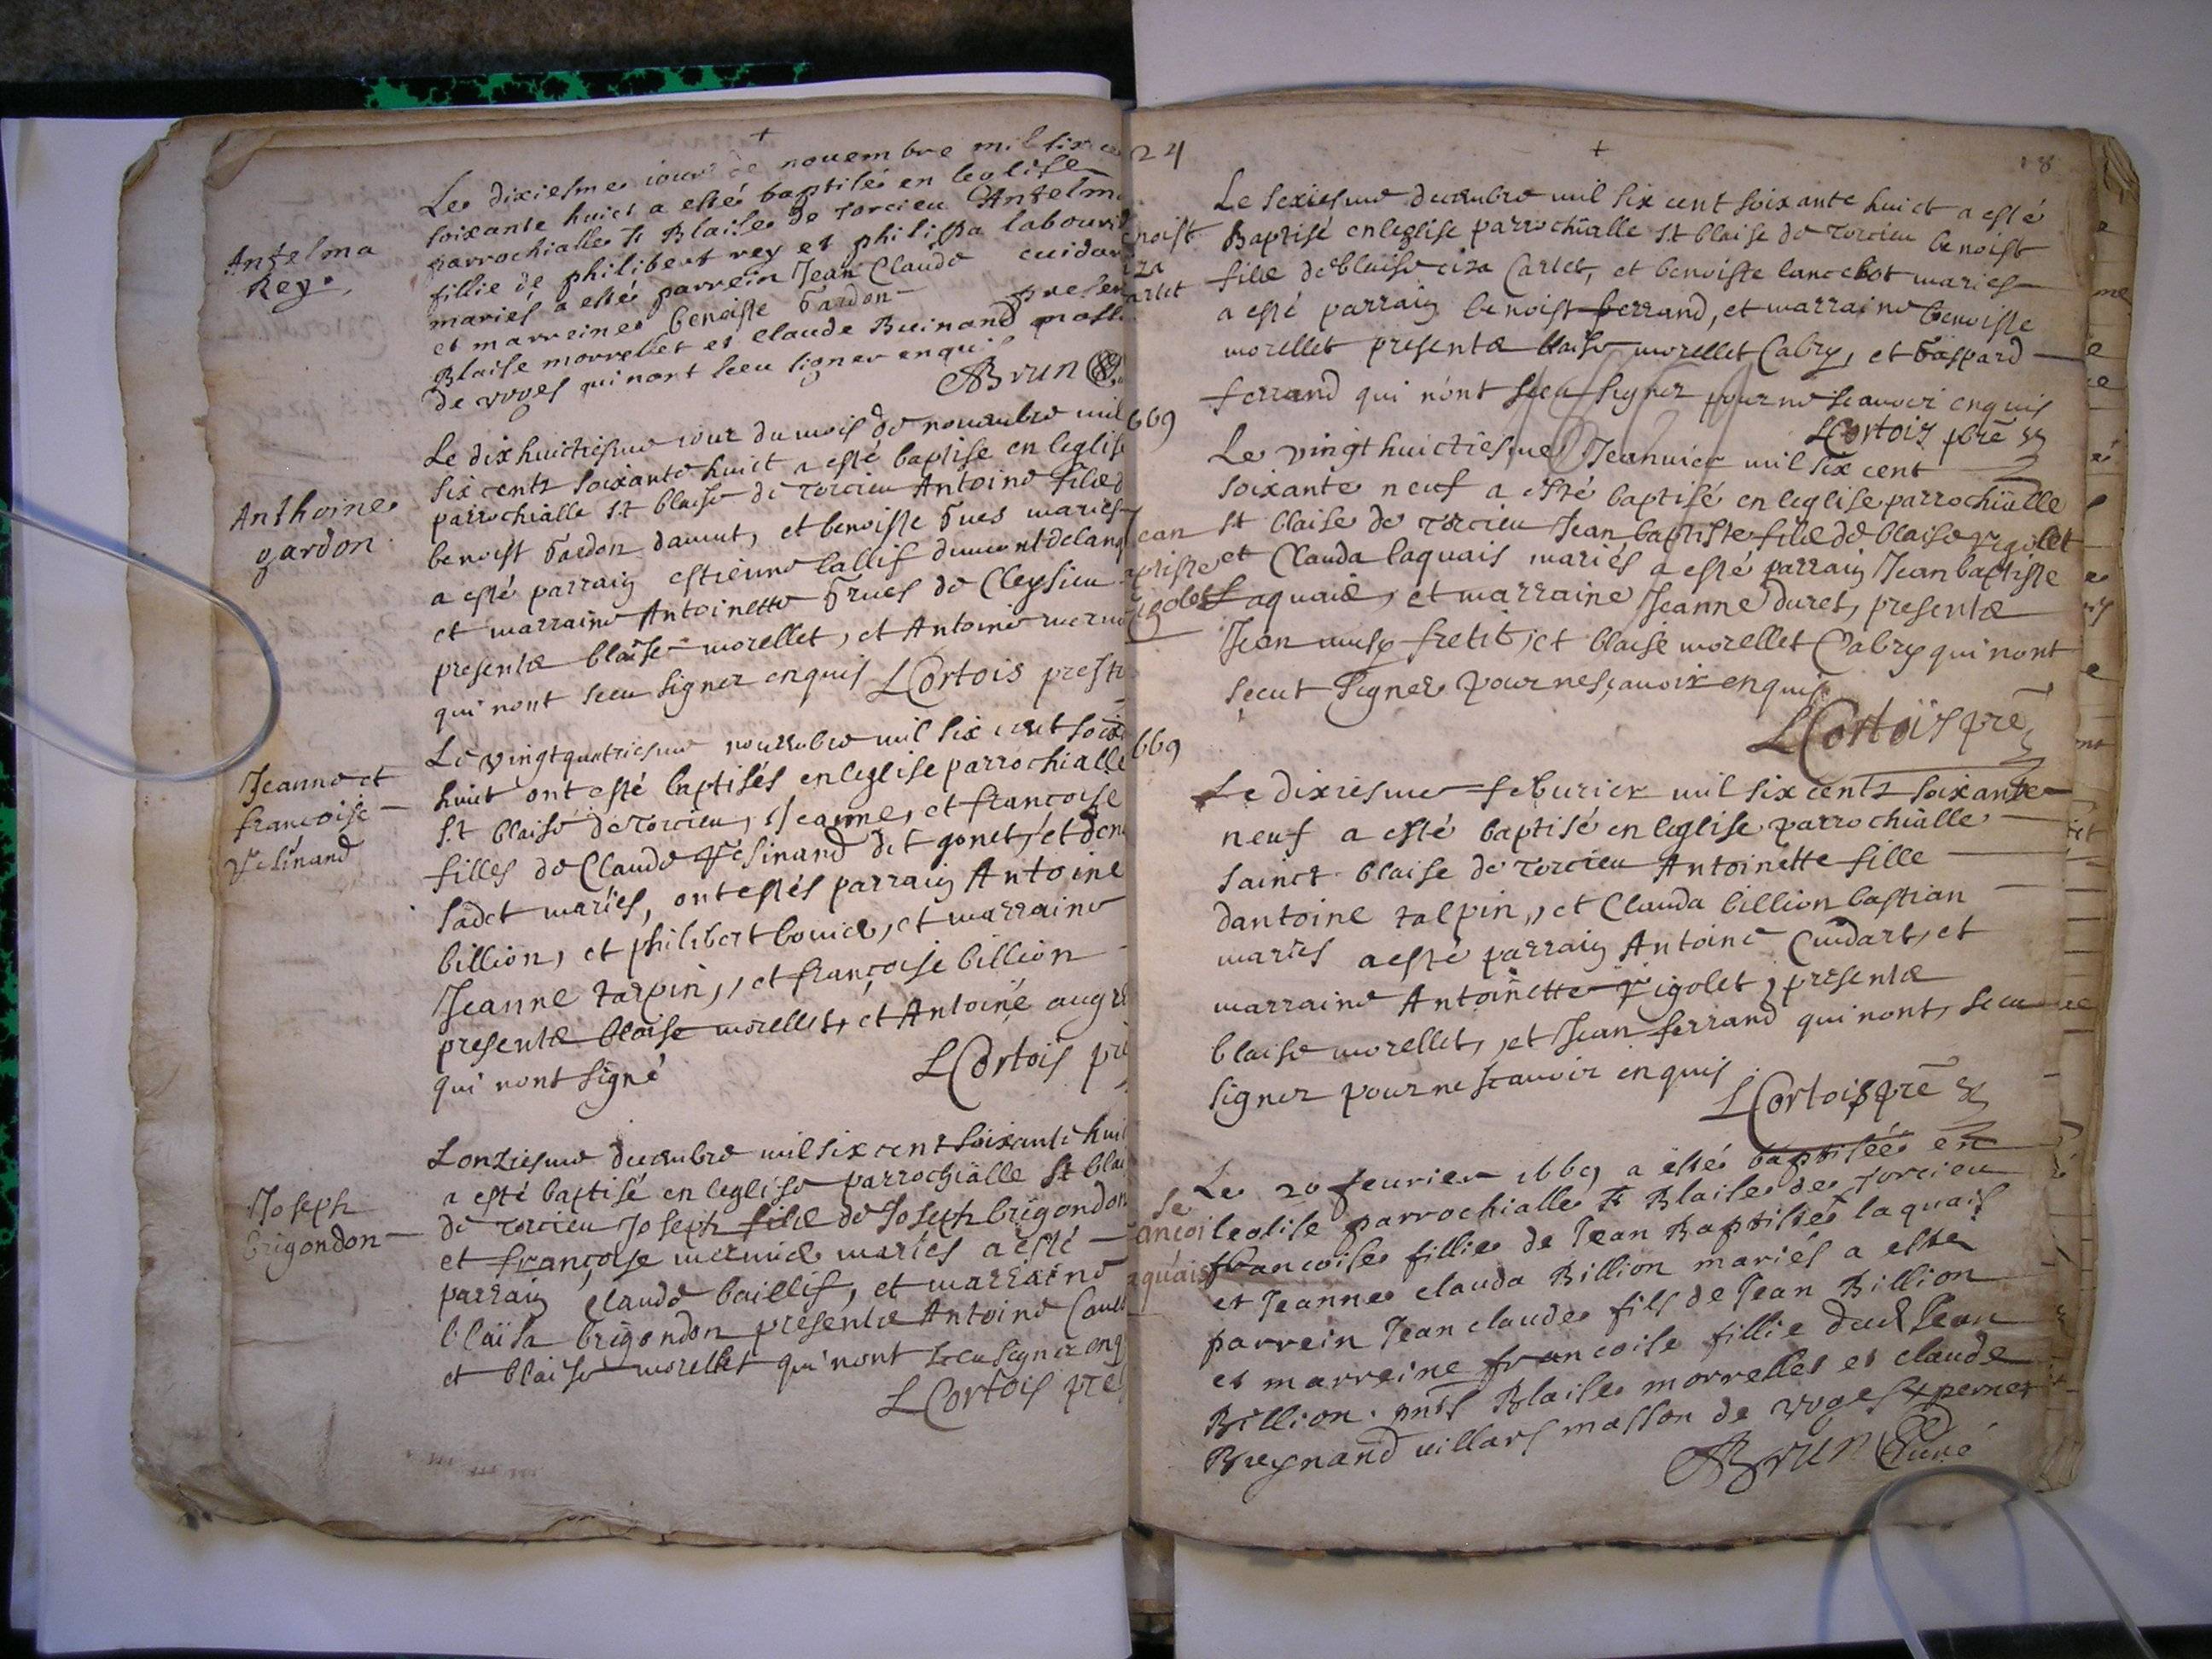 +
Antelma
Rey.
Le dixiesme iour de nouembre mil six ce
soixante huict a esté baptisée en leglise
parrochialle St Blaise de torcieu Antelm
fillie de philibert rey et philippa labouri
mariés a esté parrein Jean Claude cuidar
et marreine benoiste Gardon presen
Blaise morrellet et claude Buinand mass
de vvges qui nont sceu signer enquis
Brun
Anthoine
gardon
Le dixhuictiesme iour du mois de nouembre mil
six cents soixante huict a esté baptise en leglise
parrochialle St blaise de torcieu Antoine filz d
benoist Gardon damut, et benoiste Grues mariés
a esté parrain estienne ballif dumont delang
et marraine Antoinette Grues de Cleysieu
presentz blaise morellet, et Antoine mermo
qui nont sceu signer enquis LCortois prestr
Jeanne et
françoise
Vesinand
Le vingtquatriesme nouembre mil six cent soix
huict ont esté baptisés en leglise parrochialle
St blaise de Torcieu, Jeanne, et françoise
filles de Claude Vesinand dit gonet, et deni
sadet mariés, ont estés parrain Antoine
billion, et philibert bouier, et marraine
Jeanne talpin, et françoise billion
presentz blaise morellet, et Antoine augr
qui nont signé LCortois pr
Joseph
brigondon
Lonziesme decembre mil six cent soixante huit
a esté baptisé en leglise parrochialle St blai
de torcieu Joseph filz de Joseph brigondon
et françoise mermier mariés a esté
parrain Claude baillif, et marraine
blaisa brigondon presentz Antoine
et blaise morellet qui nont sceu signer enq
LCortois pre
24
+
18
enoist
iza
artet
Le sexiesme decembre mil six cent soixante huict a esté
Baptisé en leglise parrochialle St blaise de torcieu benoist
filz de blaise ciza Cartet, et benoiste lancelot mariés
a esté parrain benoist ferrand, et marraine benoiste
morellet presentz blaise morellet Cabry, et Gaspard
ferrand qui n'ont sceu signer pour ne scauoir enquis
LCortois pbre
669
1669
ean
aptiste
igolet
Le vingthuictiesme Jeanuier mil six cent
soixante neuf a esté baptisé en leglise parrochialle
St blaise de torcieu Jean baptiste filz de blaise rigolet
et Clauda laquais mariés a esté parrain Jean baptiste
Laquais, et marraine Jeanne duret, presentz
Jean fretit, et blaise morellet Cabry qui nont
sceut signer pour ne scauoir enquis
LCortois pre
669
Le dixiesme feburier mil six cents soixante
neuf a esté baptisé en leglise parrochialle
sainct blaise de torcieu Antoinette fille
dantoine talpin, et Clauda billion bastian
mariés a esté parrain Antoine Cuidart, et
marraine Antoinette rigolet, presentz
blaise morellet, et Jean ferrand qui nont, sceu
signer pour ne scauoir enquis
LCortois pre
se
ançoi
aquais
Le 20 feurier 1669 a esté baptisée en
leglise parrochialle St Blaise de torcieu
francoise fillie de Jean Baptiste laquais
et Jeanne clauda Billion mariés a esté
parrein Jean claude fils de Jean Billion
et marreine francoise fillie dud Jean
Billion. pnts Blaise morrellet et claude
Breynand villars masson de vvges
Brun Curé